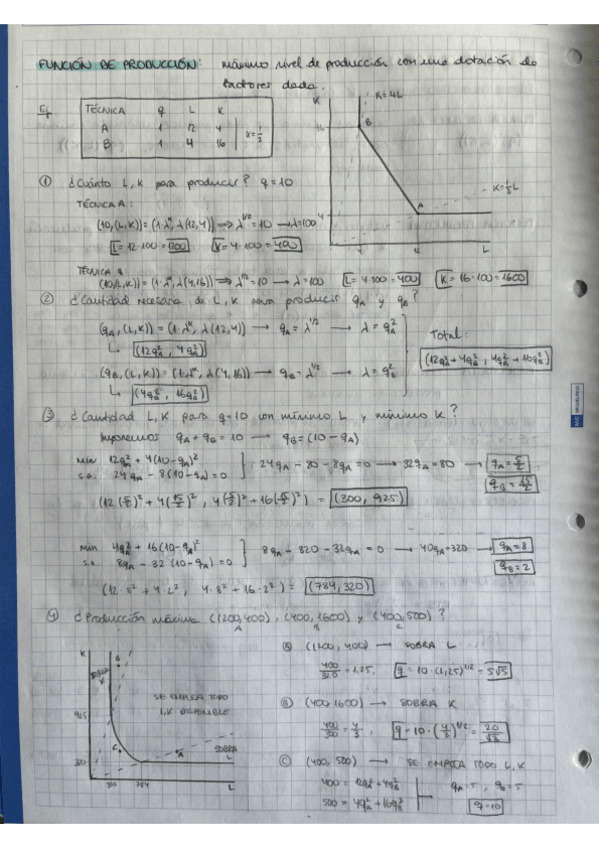 FUNCIÓN DE PRODUCCIÓN: máximo nivel de producción con una dotación de
factores dada.
Ej. TÉCNICA q L K
A 1 12 4
B 1 4 16
α = 1/2
K
K=4L
16
B
A
K=1/3L
4
4
12
L
① ¿Cuánto L, K para producir? q=10
TÉCNICA A:
(10,(L,K)) = (1·λ^α, λ(12,4)) ⟹ λ^1/2 = 10 → λ=100
L=12·100=1200 K=4·100=400
TÉCNICA B:
(10,(L,K)) = (1·λ^α, λ(4,16)) ⟹ λ^1/2 = 10 → λ=100 L=4·100=400 K=16·100=1600
② ¿Cantidad necesaria de L, K para producir qA y qB?
(qA,(L,K)) = (1·λ^α, λ(12,4)) → qA = λ^1/2 → λ = qA²
↳ (12qA², 4qA²)
(qB,(L,K)) = (1·λ^α, λ(4,16)) → qB = λ^1/2 → λ = qB²
↳ (4qB², 16qB²)
Total:
(12qA²+4qB², 4qA²+16qB²)
③ ¿Cantidad L, K para q=10 con mínimo L y mínimo K?
Imponemos qA + qB = 10 → qB = (10-qA)
min 12qA² + 4(10-qA)²
s.a. 24qA - 8(10-qA) = 0
24qA - 80 - 8qA = 0 → 32qA = 80 → qA = 5/2
qB = 15/2
(12(5/2)² + 4(15/2)², 4(5/2)² + 16(15/2)²) = (300, 925)
min 4qA² + 16(10-qA)²
s.a. 8qA - 32(10-qA) = 0
8qA - 320 - 32qA = 0 → 40qA = 320 → qA = 8
qB = 2
(12·8² + 4·2², 4·8² + 16·2²) = (784, 320)
④ ¿Producción máxima (1200,400), (400,1600) y (400,500)?
A B C
K
SOBRA K
B
SE EMPLEA TODO
L,K DISPONIBLE
925
C
A
SOBRA L
320
300 784 L
Ⓐ (1200, 400) → SOBRA L
400/320 = 1,25, q = 10·(1,25)^1/2 = 5√5
Ⓑ (400,1600) → SOBRA K
400/300 = 4/3, q = 10·(4/3)^1/2 = 20/√3
Ⓒ (400, 500) → SE EMPLEA TODO L,K
400 = 12qA² + 4qB²
500 = 4qA² + 16qB²
qA = 5, qB = 5
q=10